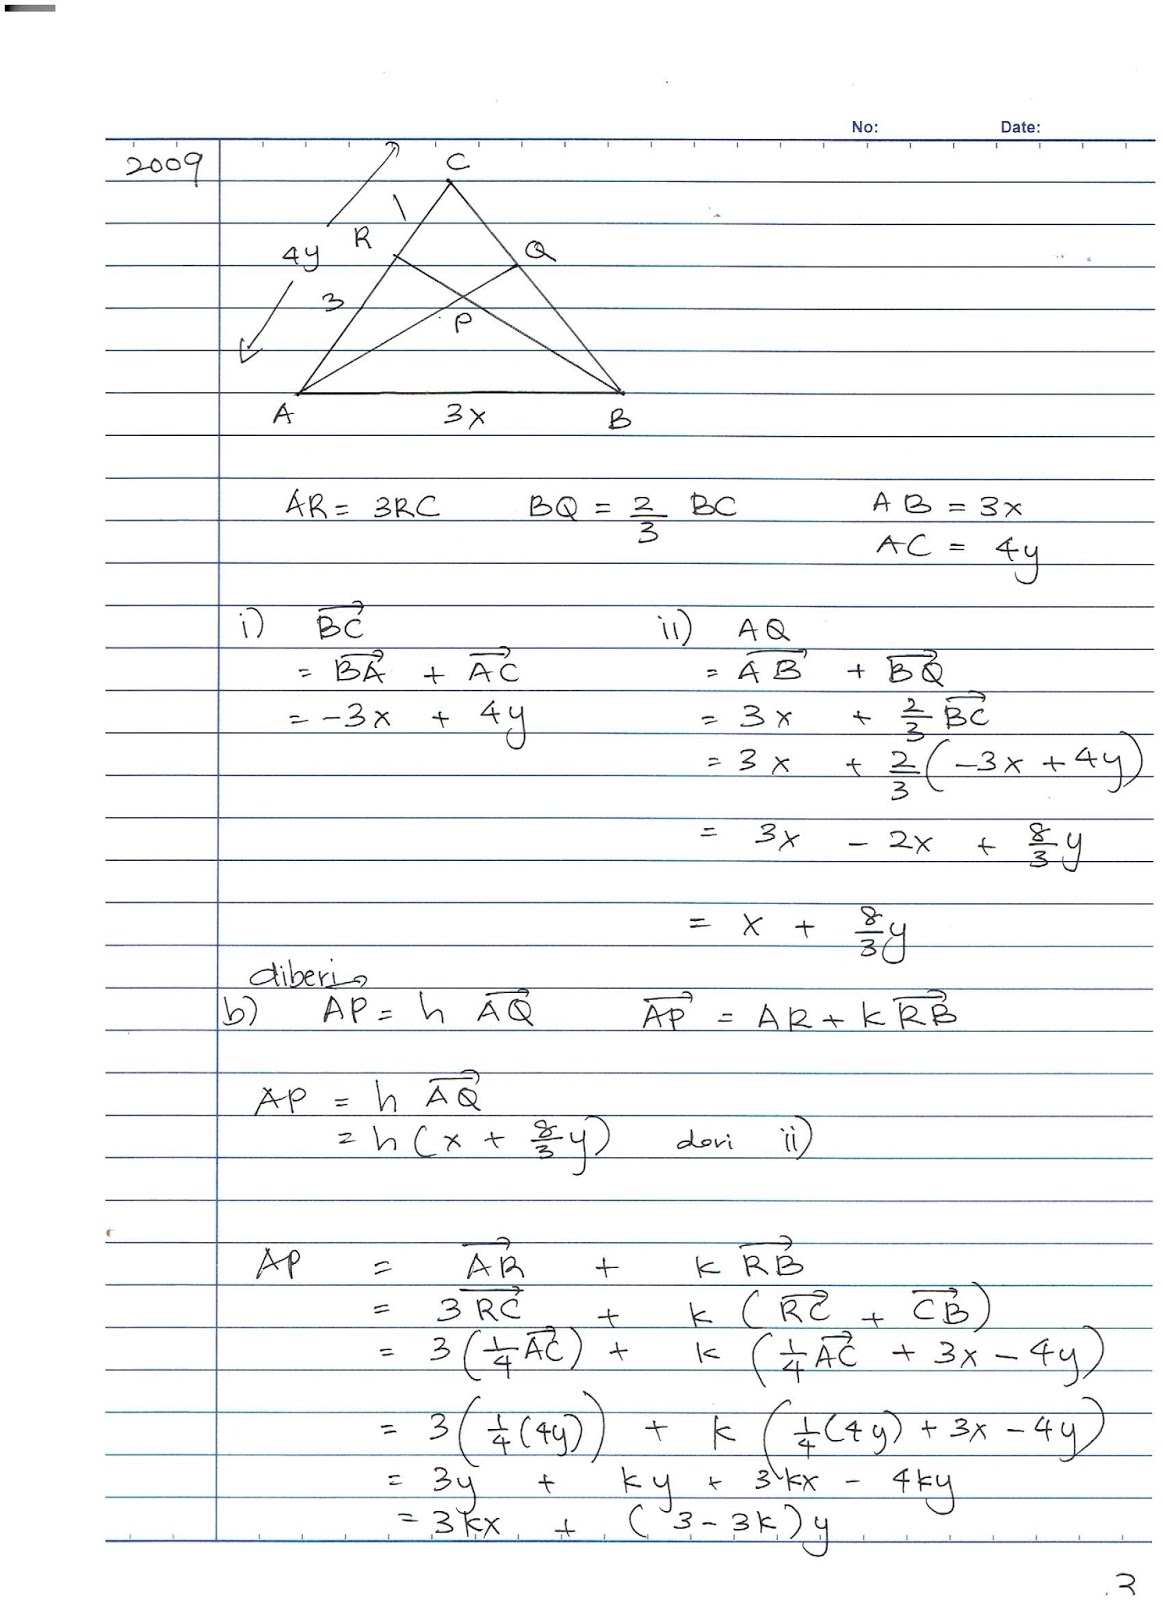 No: Date:
2009
C
1
R
Q
4y
3
P
A 3x B
AR = 3RC BQ = 2/3 BC AB = 3x
AC = 4y
i) BC→ ii) AQ
= BA→ + AC→ = AB→ + BQ→
= -3x + 4y = 3x + 2/3 BC→
= 3x + 2/3 (-3x + 4y)
= 3x - 2x + 8/3 y
= x + 8/3 y
diberi
b) AP = h AQ→ AP→ = AR + k RB→
AP = h AQ→
= h (x + 8/3 y) dari ii)
AP = AR→ + k RB→
= 3 RC→ + k (RC→ + CB→)
= 3 (1/4 AC→) + k (1/4 AC→ + 3x - 4y)
= 3 (1/4 (4y)) + k (1/4 (4y) + 3x - 4y)
= 3y + ky + 3kx - 4ky
= 3kx + (3 - 3k) y
2